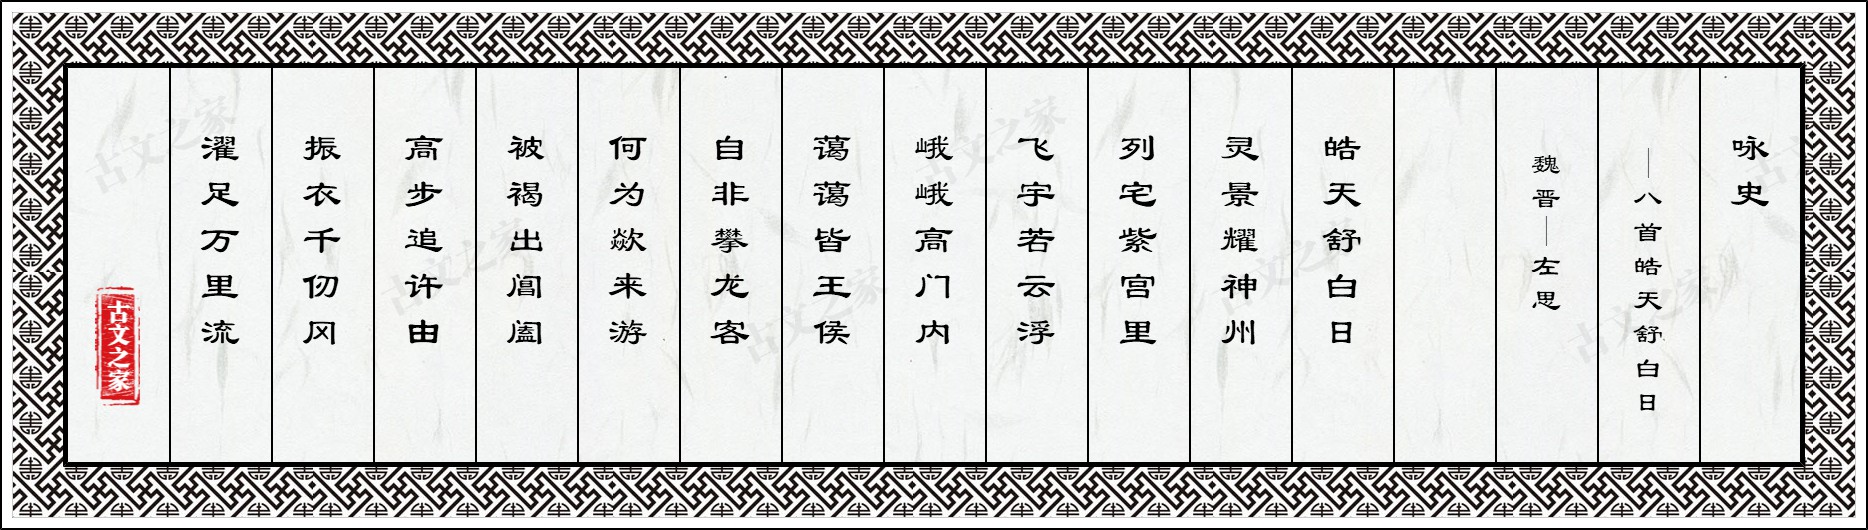 咏史
—八首皓天舒白日
魏晋—左思
皓天舒白日
灵景耀神州
列宅紫宫里
飞宇若云浮
峨峨高门内
蔼蔼皆王侯
自非攀龙客
何为欻来游
被褐出阊阖
高步追许由
振衣千仞冈
濯足万里流
古文之家